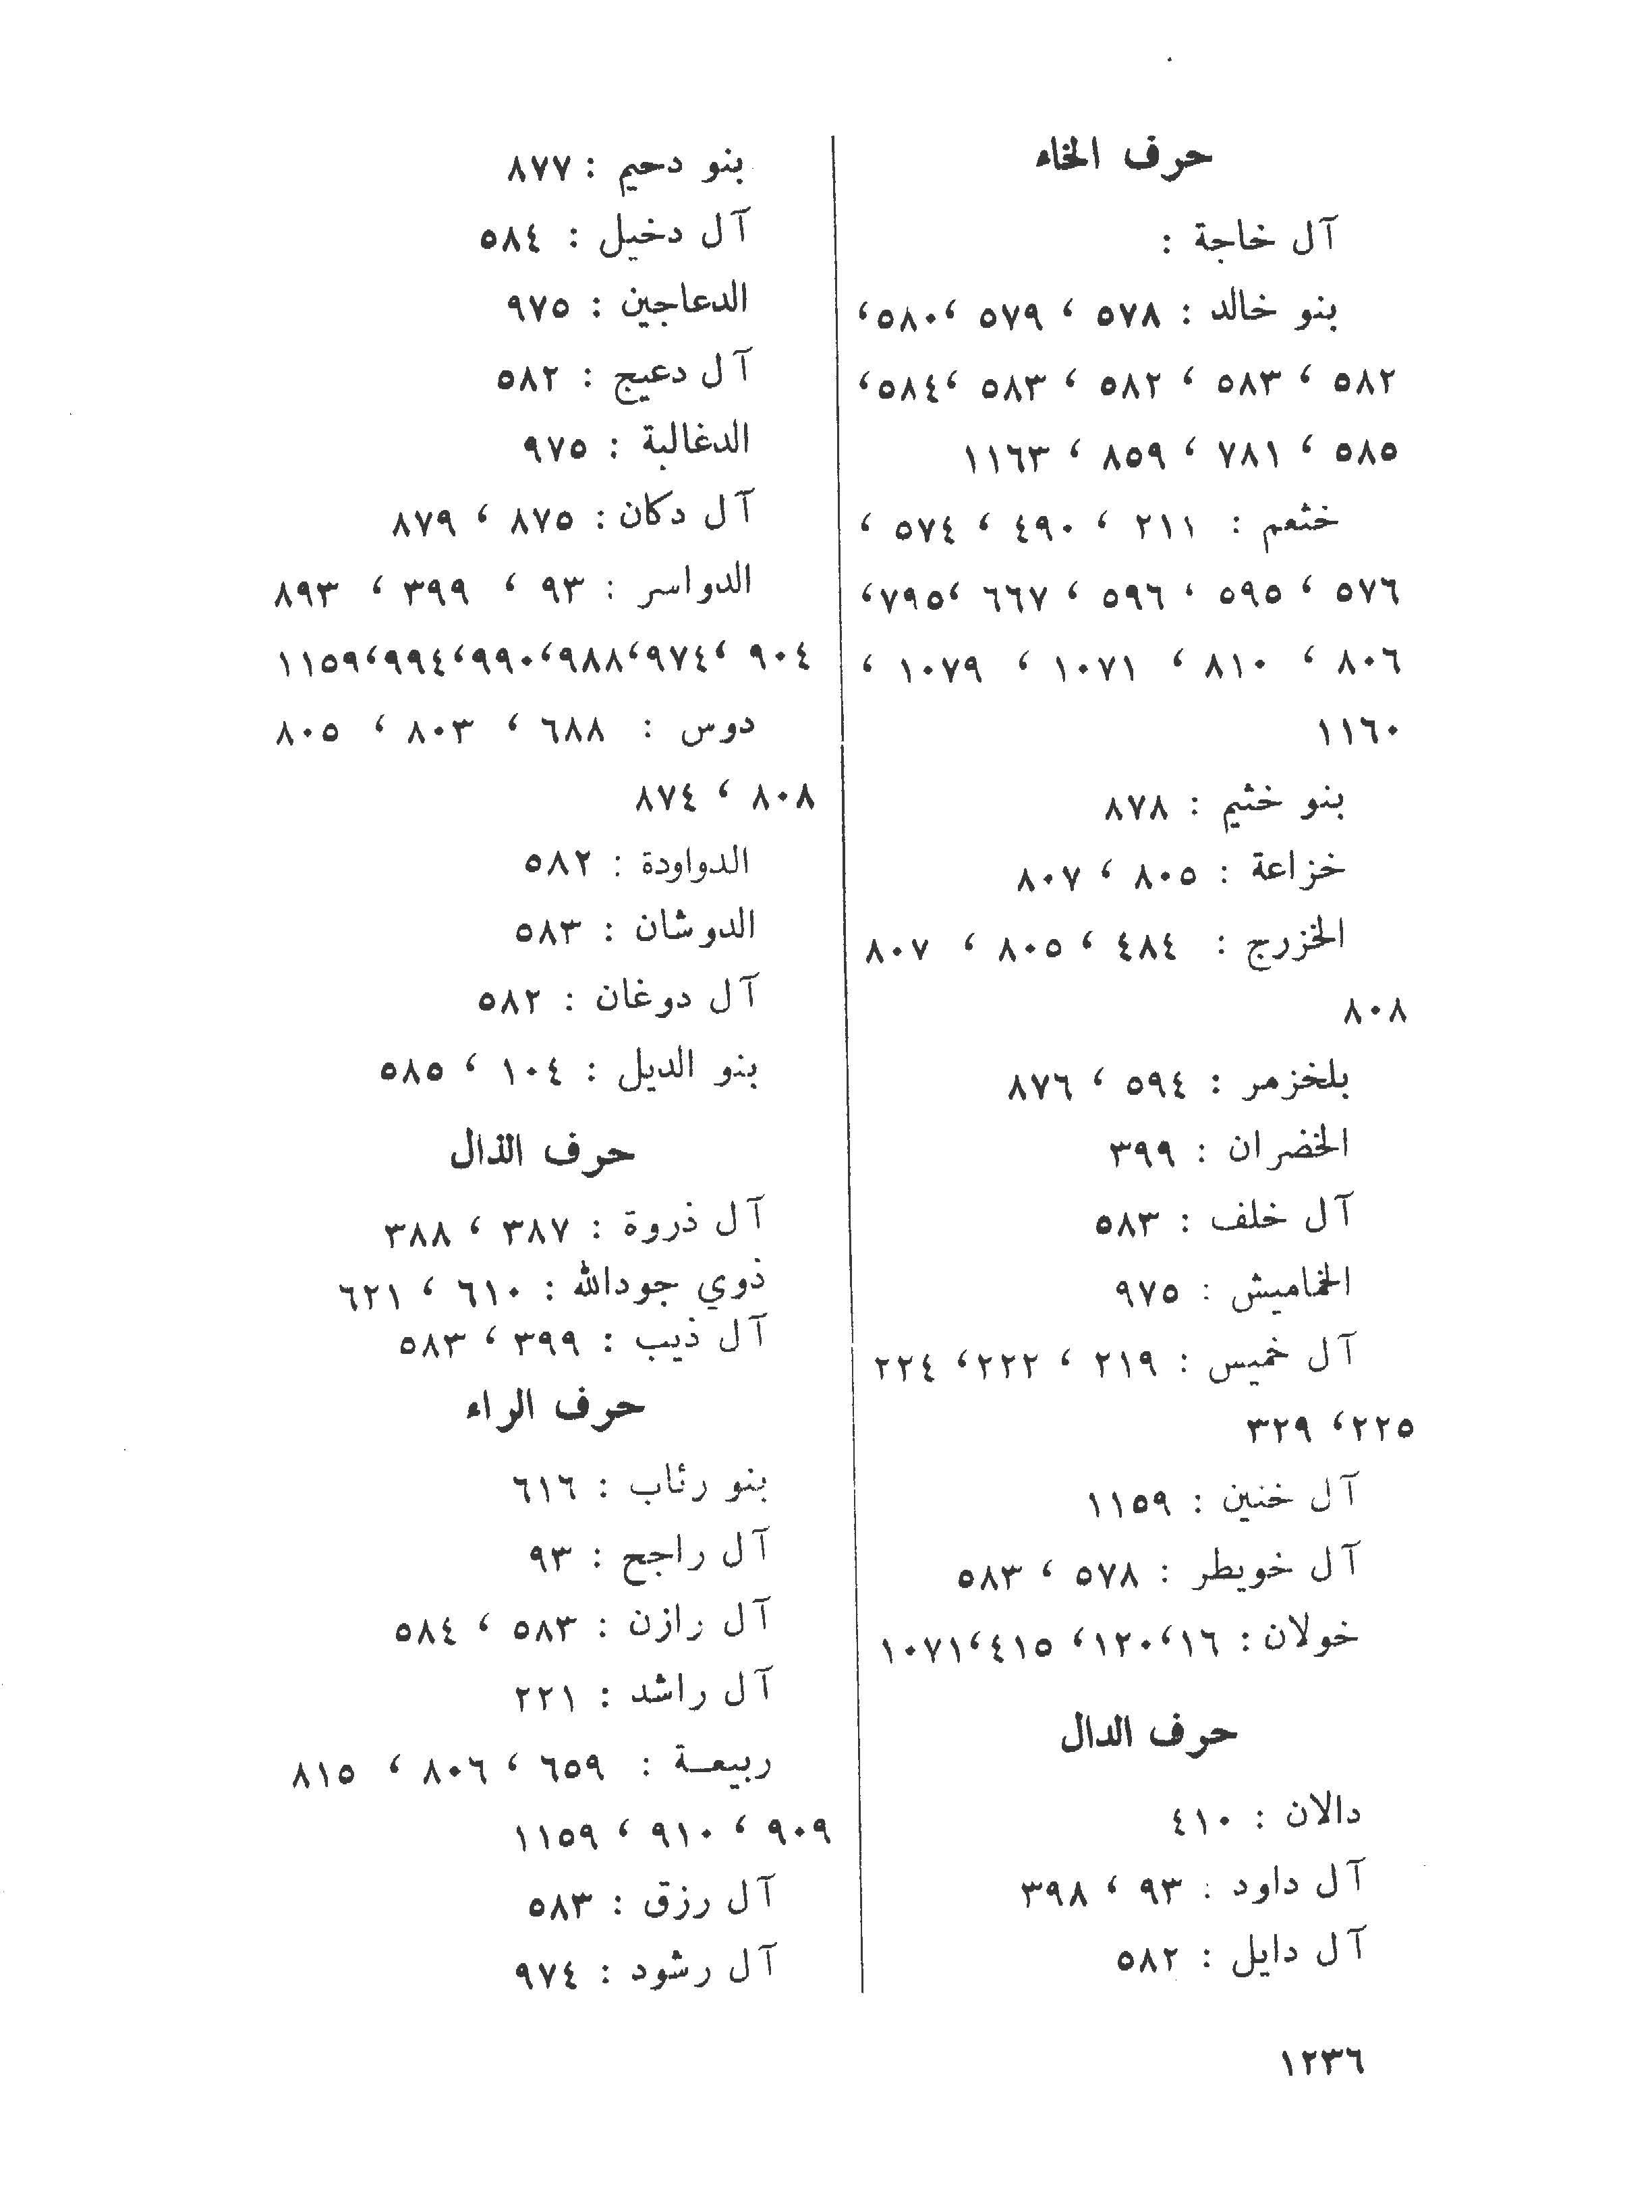 حرف الخاء
آل خاجة :
بنو خالد : ٥٧٨ ، ٥٧٩ ،٥٨٠،
٥٨٢ ، ٥٨٣ ، ٥٨٢ ، ٥٨٣ ،٥٨٤،
٥٨٥ ، ٧٨١ ، ٨٥٩ ، ١١٦٣
خثعم : ٢١١ ، ٤٩٠ ، ٥٧٤ ،
٥٧٦ ، ٥٩٥ ، ٥٩٦ ، ٦٦٧ ،٧٩٥،
٨٠٦ ، ٨١٠ ، ١٠٧١ ، ١٠٧٩ ،
١١٦٠
بنو خثيم : ٨٧٨
خزاعة : ٨٠٥ ، ٨٠٧
الخزرج : ٤٨٤ ، ٨٠٥ ، ٨٠٧
٨٠٨
بلخزمر : ٥٩٤ ، ٨٧٦
الخضران : ٣٩٩
آل خلف : ٥٨٣
الخماميش : ٩٧٥
آل خميس : ٢١٩ ، ٢٢٢، ٢٢٤
٢٢٥، ٣٢٩
آل خنين : ١١٥٩
آل خويطر : ٥٧٨ ، ٥٨٣
خولان : ١٦،١٢٠، ٤١٥،١٠٧١
حرف الدال
دالان : ٤١٠
آل داود : ٩٣ ، ٣٩٨
آل دايل : ٥٨٢
بنو دحيم : ٨٧٧
آل دخيل : ٥٨٤
الدعاجين : ٩٧٥
آل دعيج : ٥٨٢
الدغالبة : ٩٧٥
آل دكان : ٨٧٥ ، ٨٧٩
الدواسر : ٩٣ ، ٣٩٩ ، ٨٩٣
٩٠٤ ،٩٧٤،٩٨٨،٩٩٠،٩٩٤،١١٥٩
دوس : ٦٨٨ ، ٨٠٣ ، ٨٠٥
٨٠٨ ، ٨٧٤
الدواودة : ٥٨٢
الدوشان : ٥٨٣
آل دوغان : ٥٨٢
بنو الديل : ١٠٤ ، ٥٨٥
حرف الذال
آل ذروة : ٣٨٧ ، ٣٨٨
ذوي جودالله : ٦١٠ ، ٦٢١
آل ذيب : ٣٩٩ ، ٥٨٣
حرف الراء
بنو رئاب : ٦١٦
آل راجح : ٩٣
آل رازن : ٥٨٣ ، ٥٨٤
آل راشد : ٢٢١
ربيعـة : ٦٥٩ ، ٨٠٦ ، ٨١٥
٩٠٩ ، ٩١٠ ، ١١٥٩
آل رزق : ٥٨٣
آل رشود : ٩٧٤
١٢٣٦